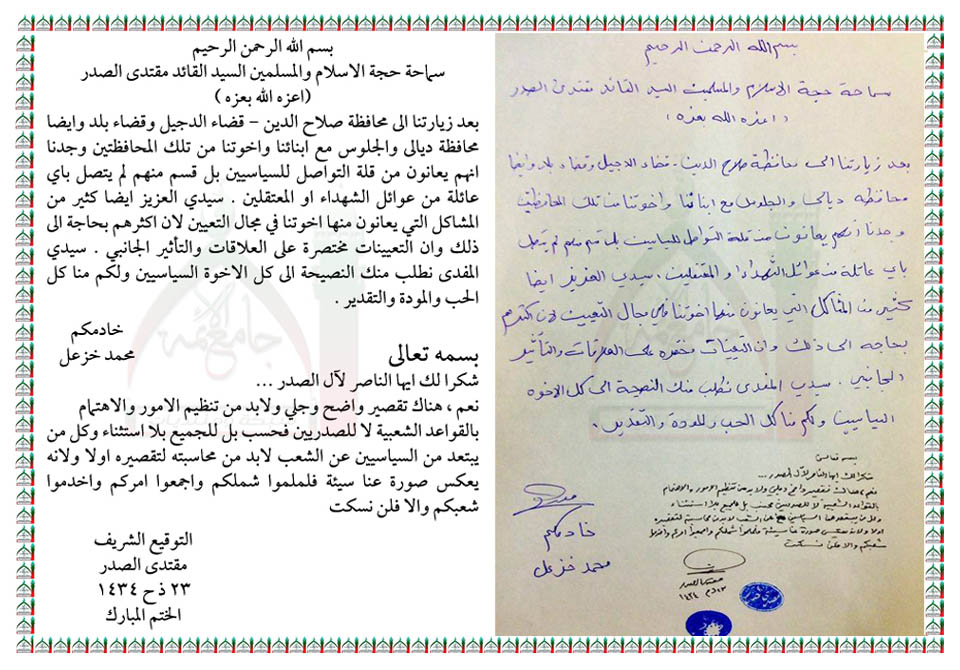 بسم الله الرحمن الرحيم
سماحة حجة الاسلام والمسلمين السيد القائد مقتدى الصدر
(اعزه الله بعزه)
بعد زيارتنا الى محافظة صلاح الدين – قضاء الدجيل وقضاء بلد وايضا
محافظة ديالى والجلوس مع ابنائنا واخوتنا من تلك المحافظتين وجدنا
انهم يعانون من قلة التواصل للسياسيين بل قسم منهم لم يتصل باي
عائلة من عوائل الشهداء او المعتقلين . سيدي العزيز ايضا كثير من
المشاكل التي يعانون منها اخوتنا في مجال التعيين لان اكثرهم بحاجة الى
ذلك وان التعيينات مختصرة على العلاقات والتأثير الجانبي . سيدي
المفدى نطلب منك النصيحة الى كل الاخوة السياسيين ولكم منا كل
الحب والمودة والتقدير .
خادمكم
محمد خزعل
بسمه تعالى
شكرا لك ايها الناصر لآل الصدر ...
نعم ، هناك تقصير واضح وجلي ولابد من تنظيم الامور والاهتمام
بالقواعد الشعبية لا للصدريين فحسب بل للجميع بلا استثناء وكل من
يبتعد من السياسيين عن الشعب لابد من محاسبته لتقصيره اولا ولانه
يعكس صورة عنا سيئة فلملموا شملكم واجمعوا امركم واخدموا
شعبكم والا فلن نسكت
التوقيع الشريف
مقتدى الصدر
٢٣ ذح ١٤٣٤
الختم المبارك
بسم الله الرحمن الرحيم
سماحة حجة الاسلام والمسلمين السيد القائد مقتدى الصدر
(اعزه الله بعزه)
بعد زيارتنا الى محافظة صلاح الدين - قضاء الدجيل وقضاء بلد وايضا
محافظة ديالى والجلوس مع ابنائنا واخوتنا من تلك المحافظتين
وجدنا انهم يعانون من قلة التواصل للسياسيين بل قسم منهم لم يتصل
باي عائلة من عوائل الشهداء او المعتقلين . سيدي العزيز ايضا
كثير من المشاكل التي يعانون منها اخوتنا في مجال التعيين لان اكثرهم
بحاجه الى ذلك وان التعيينات مختصره على العلاقات والتأثير
الجانبي . سيدي المفدى نطلب منك النصيحة الى كل الاخوه
السياسيين ولكم منا كل الحب والمودة والتقدير .
بسمه تعالى
شكرا لك ايها الناصر لآل الصدر ...
نعم ، هناك تقصير واضح وجلي ولابد من تنظيم الامور والاهتمام
بالقواعد الشعبية لا للصدريين فحسب بل للجميع بلا استثناء
وكل من يبتعد من السياسيين عن الشعب لابد من محاسبته لتقصيره
اولا ولانه يعكس صورة عنا سيئة فلملموا شملكم واجمعوا امركم واخدموا
شعبكم والا فلن نسكت
خادمكم
محمد خزعل
مقتدى الصدر
١٤٣٤